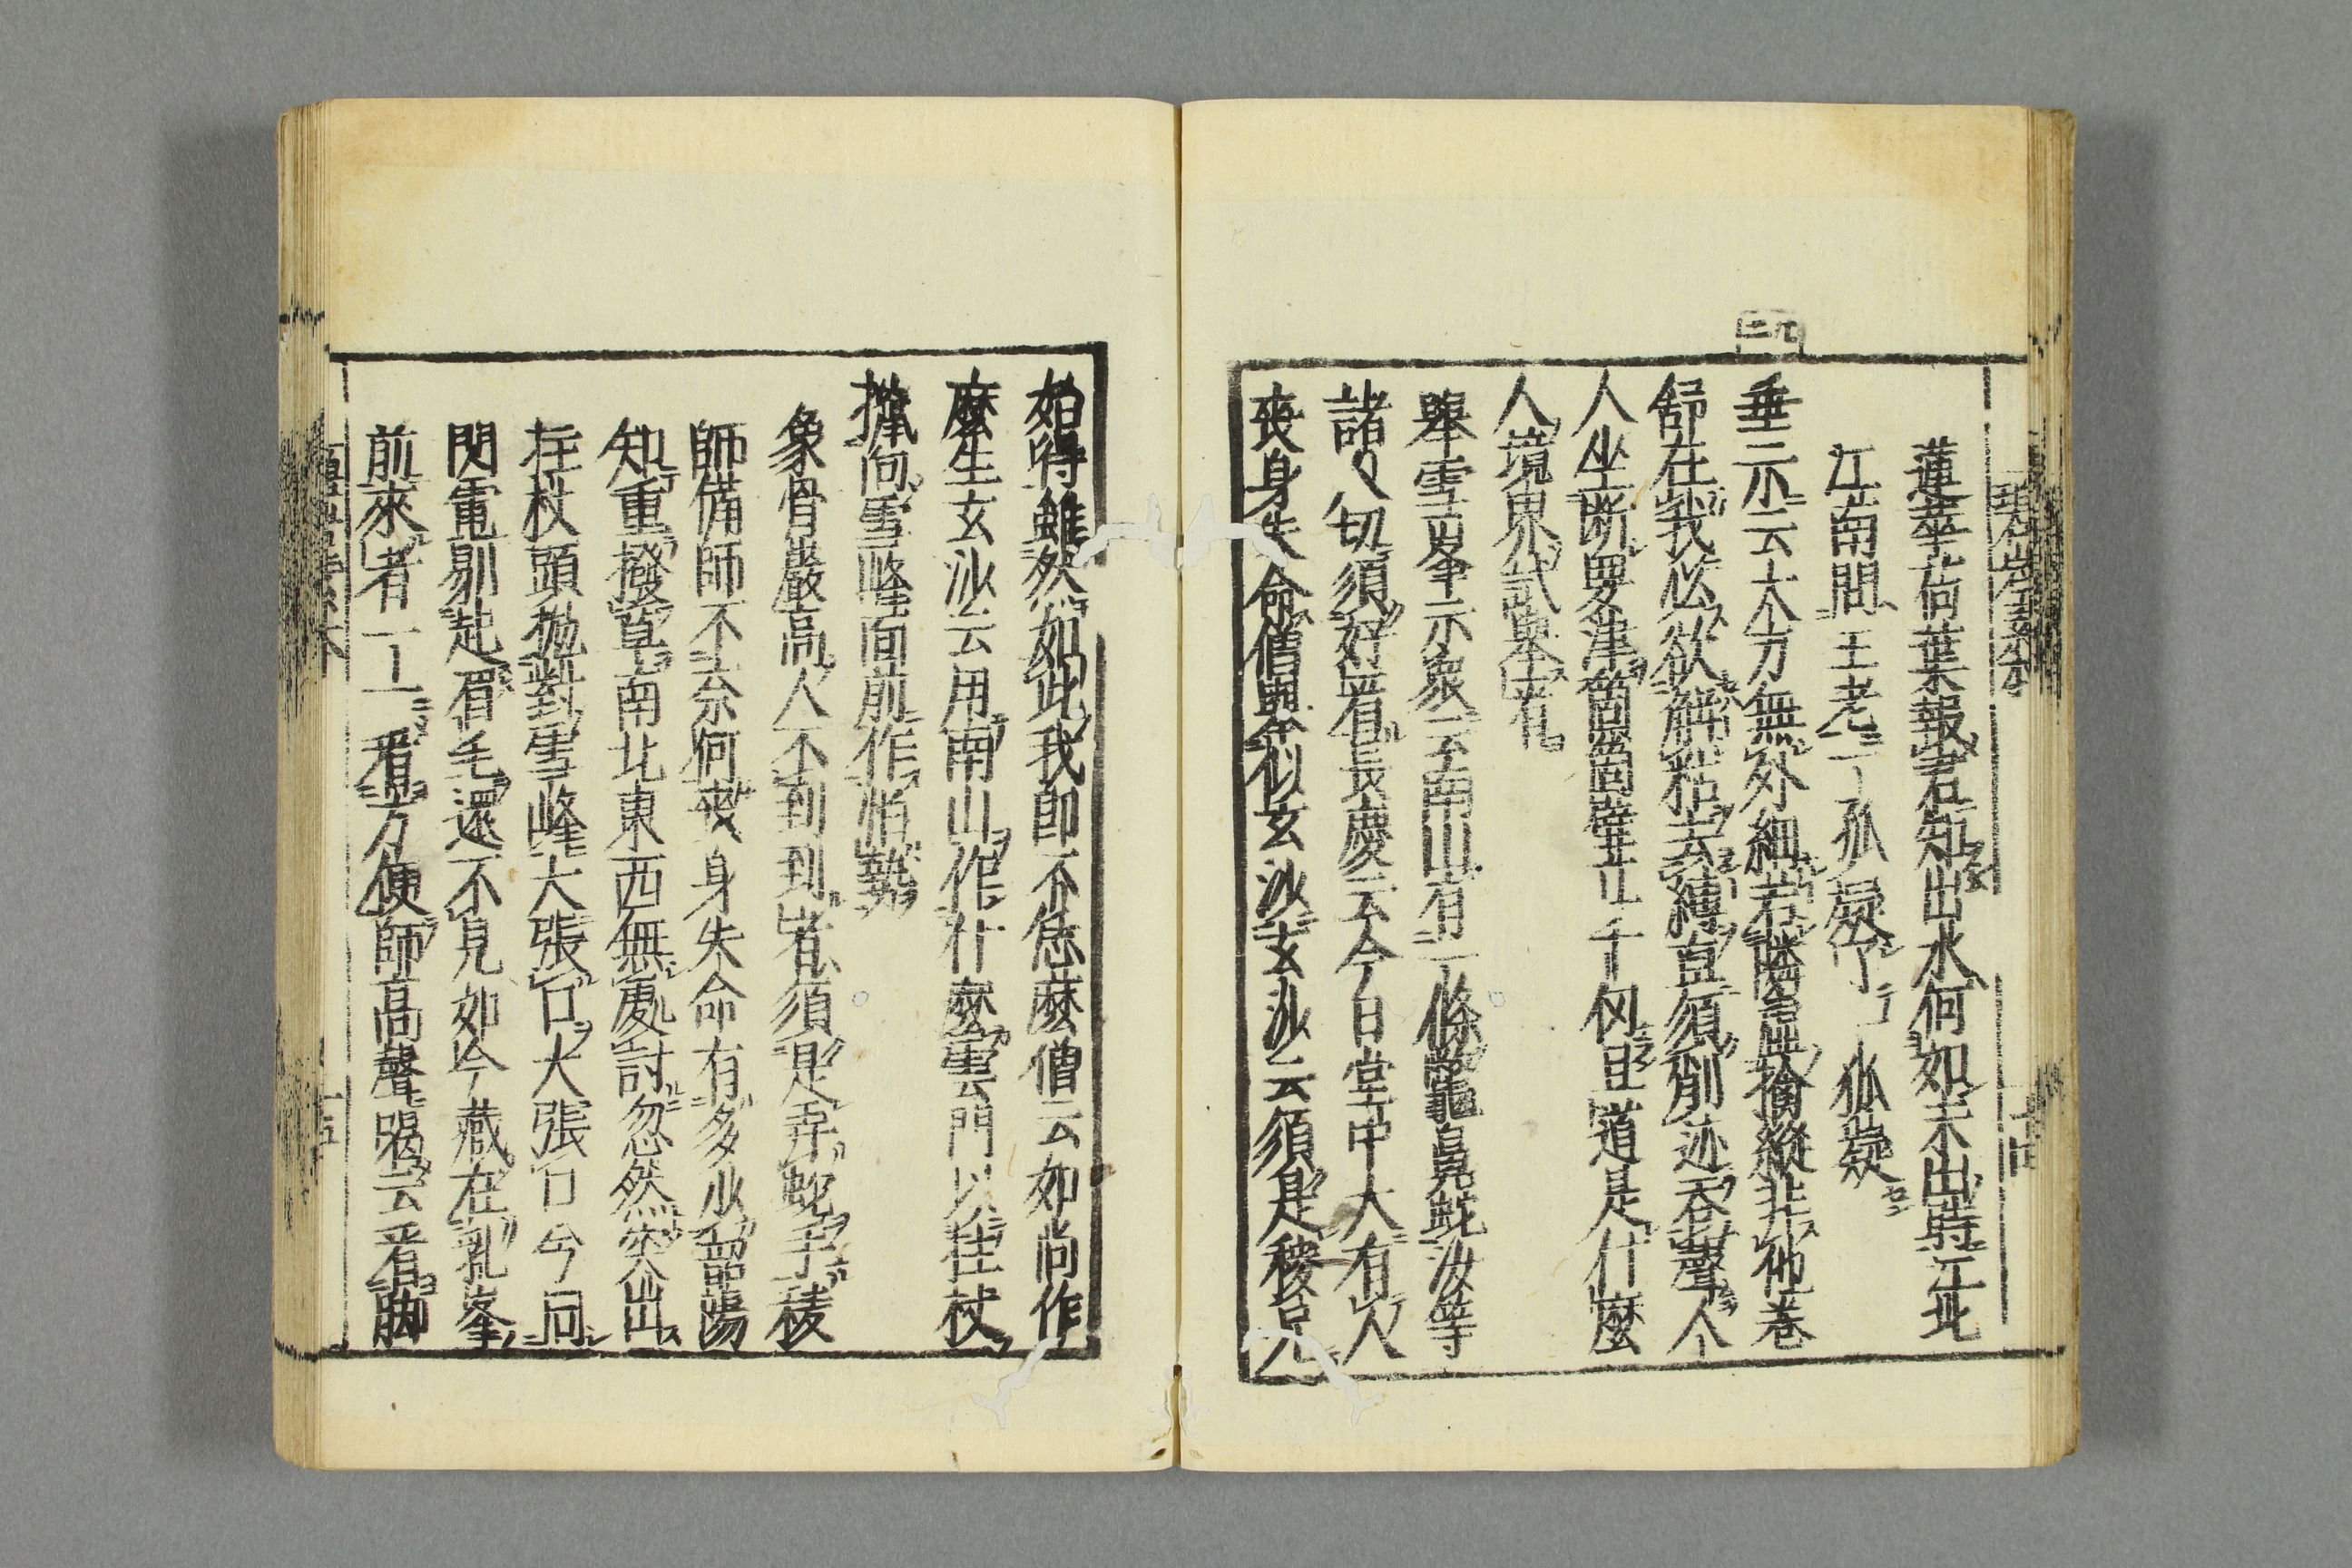 碧岩集本
蓮華荷葉報君知出水何如未出時江北
江南問王老一狐疑了一狐疑
廿二
垂示云大方無外細若隣虚擒縱非他卷
舒在我必欲解粘去縛直須削迹吞聲人
人坐断要津箇箇壁立千仭且道是什麼
人境界試舉看
舉雪峯示衆云南山有一條鼈鼻蛇汝等
諸人切須好看長慶云今日堂中大有人
喪身失命僧舉似玄沙玄沙云須是稜兄
始得雖然如此我即不恁麼僧云和尚作
麼生玄沙云用南山作什麼雲門以拄杖
攛向雪峰面前作怕勢
象骨巖高人不到到者須是弄蛇手稜
師備師不奈何喪身失命有多少韶陽
知重撥草南北東西無處討忽然突出
拄杖頭抛對雪峰大張口大張口兮同
閃電剔起眉毛還不見如今藏在乳峯
前來者一一看方便師高聲喝云看脚